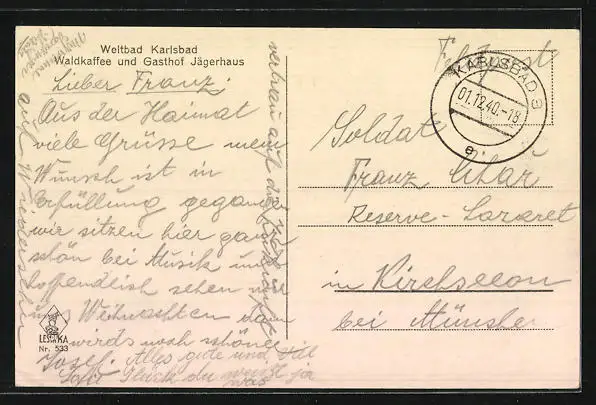 Weltbad Karlsbad
Waldkaffee und Gasthof Jägerhaus
Lieber Franz:
Aus der Haimat
viele Grüsse mein
Wunsch ist in
Erfüllung gegangen
wir sitzen hier ganz
schön bei Musik und
hoffendlich sehen wir
uns Weihnachten dann
wirds noch schöner
Josef. Alles gute und viel
Glück du weist ja
was
vertrau auf die Zukunft
auf Wiedersehen
Feldpost
KARLSBAD 3
01.12.40.-18
e
Soldat
Franz
Reserve-Lazaret
in Kirchseeon
bei Münche
LESKA
Nr. 533